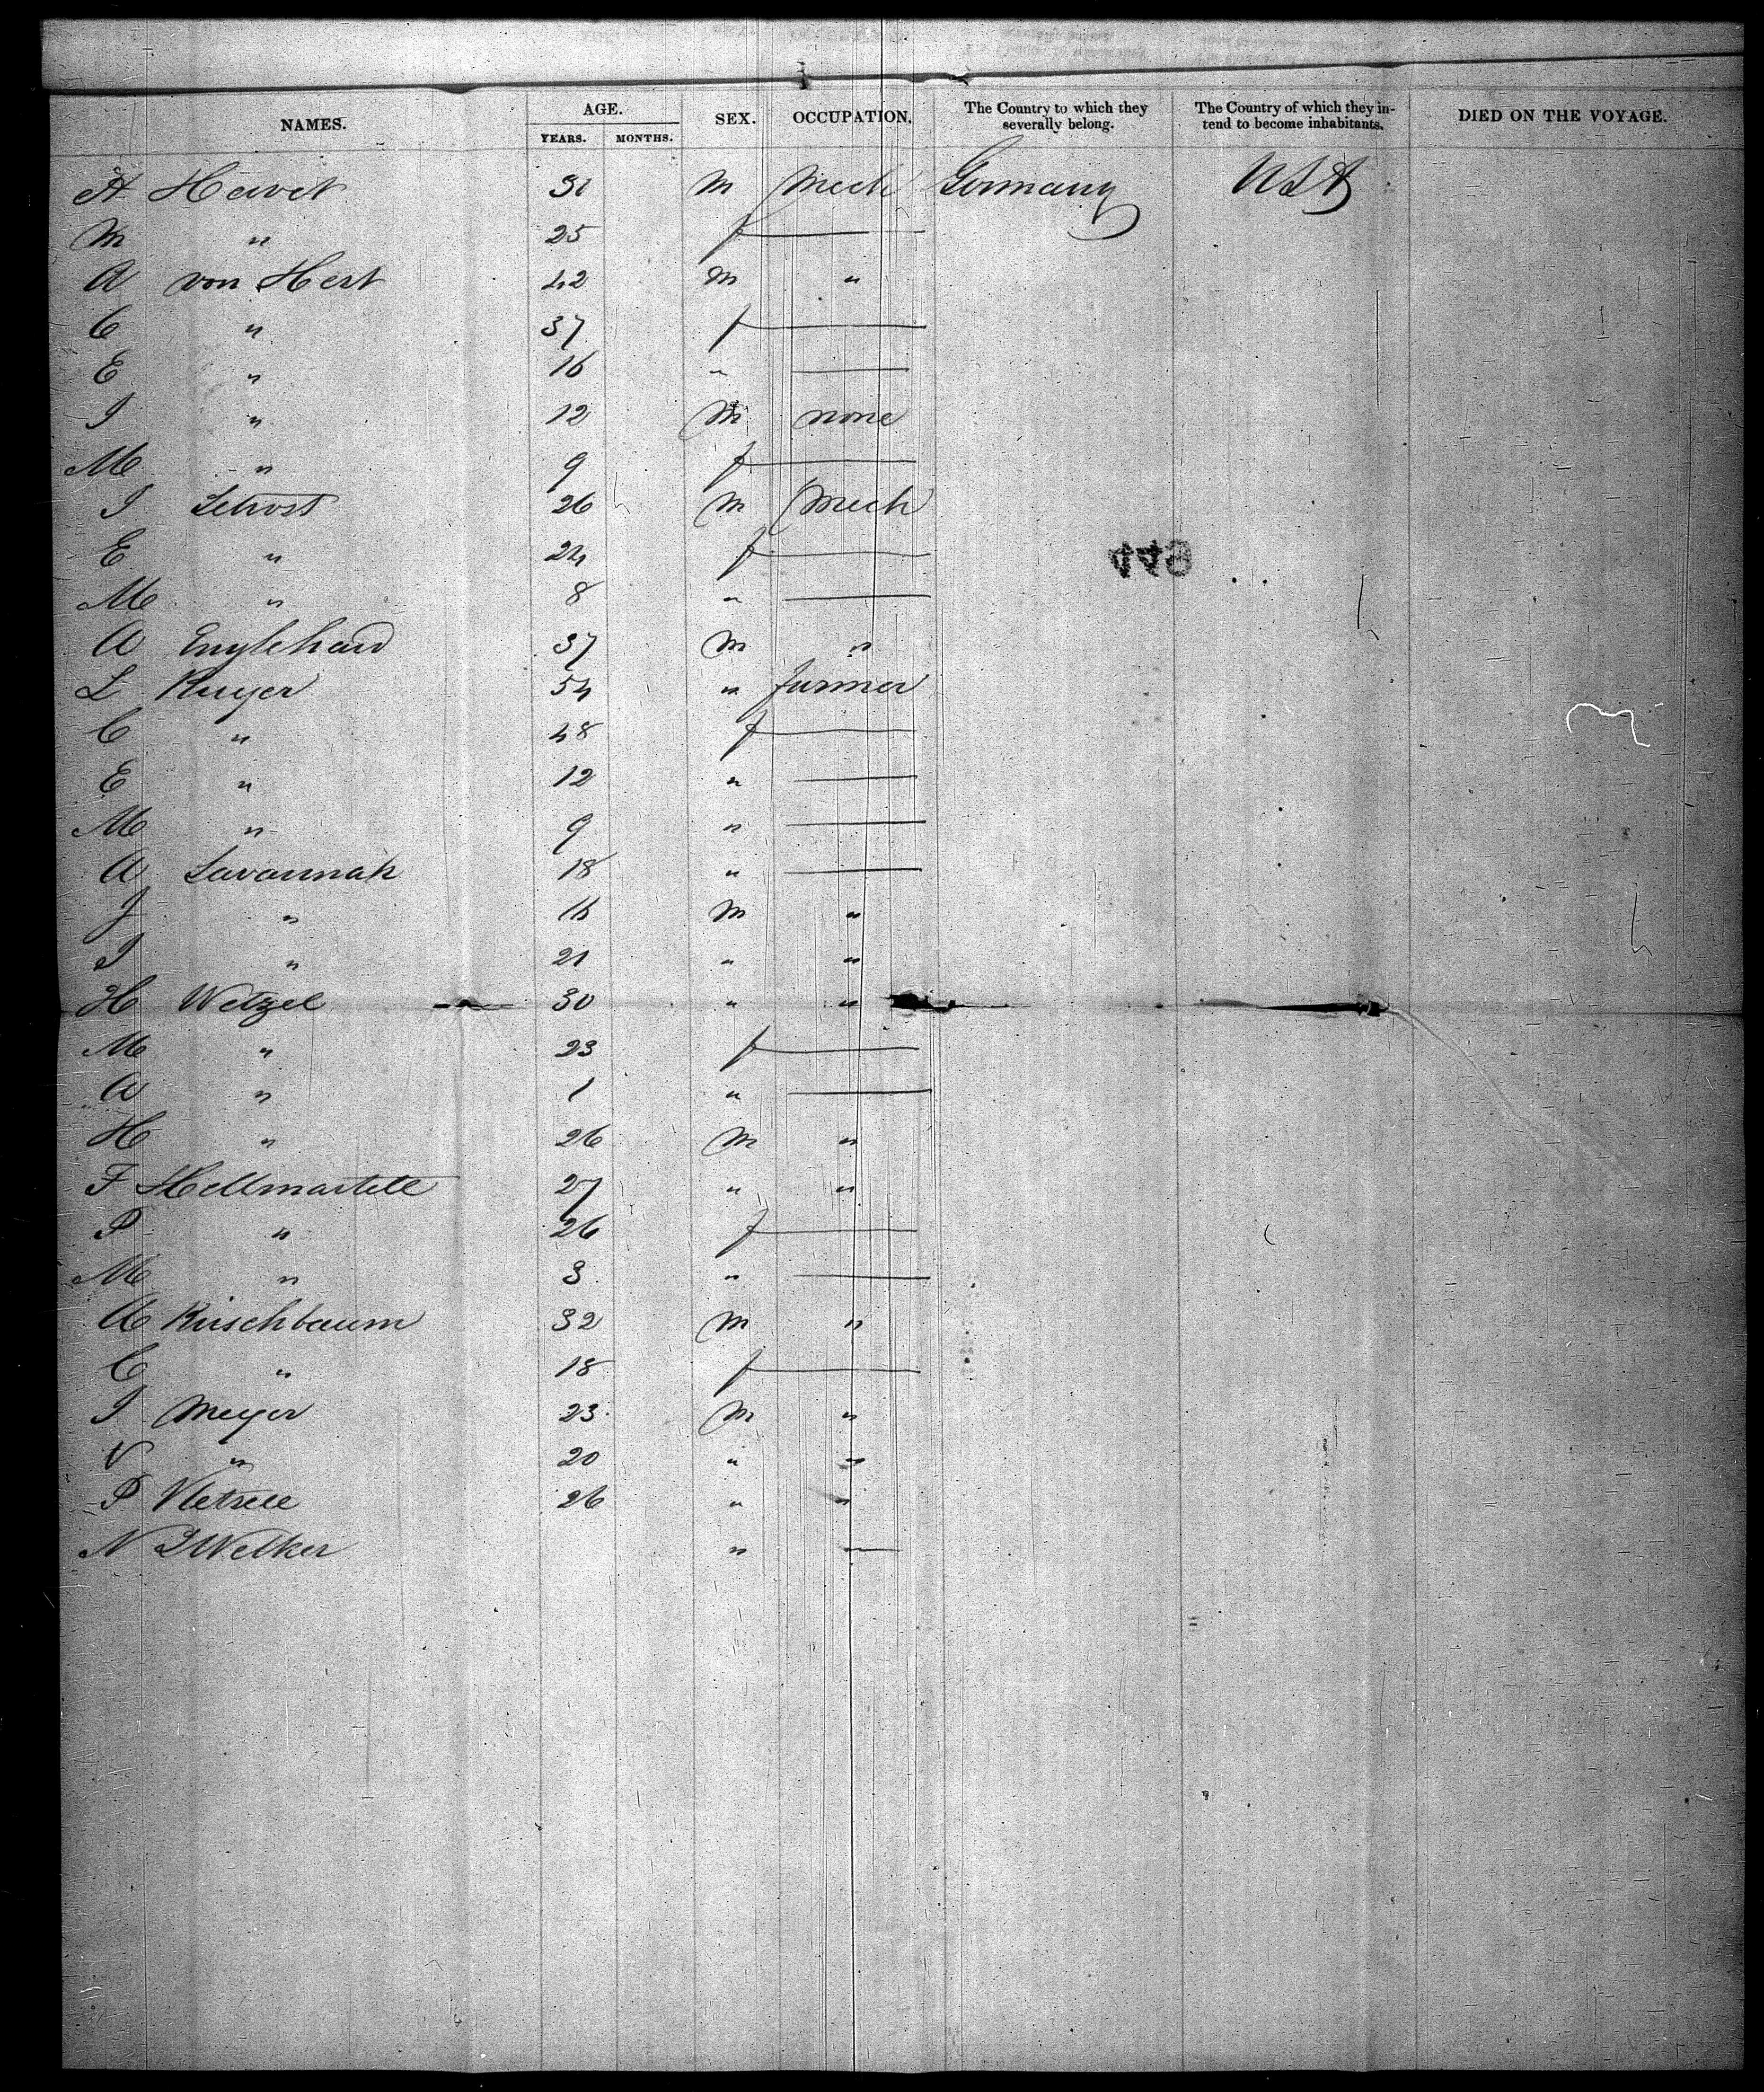 NAMES. AGE. SEX. OCCUPATION. The Country to which they severally belong. The Country of which they in- tend to become inhabitants. DIED ON THE VOYAGE.
YEARS. MONTHS.
A 31 m Mech Germany USA
M " 25 f —
A von Hest 42 m "
C " 37 f —
E " 16 " —
I " 12 m none
M " 9 f —
I 26 m Mech
E " 24 f —
M " 8 " —
A Englehard 37 m "
L 54 " farmer
C " 48 f —
E " 12 " —
M " 9 " —
A Savannah 18 " —
J " 16 m "
I " 21 " "
H Wetzel 30 " "
M " 23 f —
A " 1 " —
H " 26 m "
F 27 " "
P " 26 f —
M " 3 " —
A Kirschbaum 32 m "
C " 18 f —
I Meyer 23 m "
V " 20 " "
P 26 " "
N Welker " —